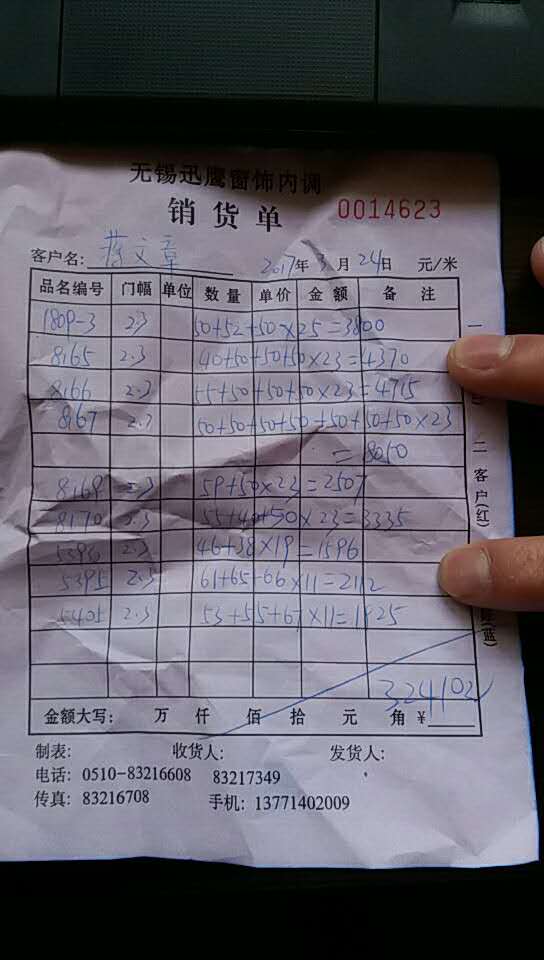 无锡迅鹰窗饰内调
销货单 0014623
客户名: 蒋文章 2017年3月24日 元/米
品名编号 门幅 单位 数量 单价 金额 备注
1809-3 2.3 50+52+50×25=3800
8165 2.3 40+50+50+50×23=4370
8166 2.3 55+50+50+50×23=4715
8167 2.3 50+50+50+50+50+50+50×23
=8050
8169 2.3 59+50×23=2507
8170 2.3 55+40+50×23=3335
5396 2.3 46+38×19=1596
5395 2.3 61+65+66×11=2112
5405 2.3 53+55+67×11=1925
金额大写: 万 仟 佰 拾 元 角 ¥
制表: 收货人: 发货人:
电话: 0510-83216608 83217349
传真: 83216708 手机: 13771402009
一
二
客户(红)
(蓝)